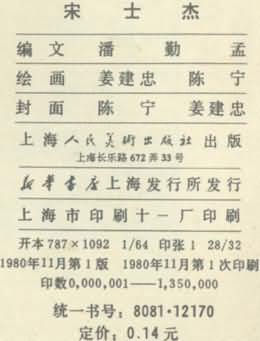 宋士杰
编文 潘勤孟
绘画 姜建忠 陈宁
封面 陈宁 姜建忠
上海人民美術出版社出版
上海长乐路672弄33号
新华書店上海发行所发行
上海市印刷十一厂印刷
开本787×1092 1/64 印张1 28/32
1980年11月第1版 1980年11月第1次印刷
印数0,000,001——1,350,000
统一书号：8081·12170
定价：0.14元